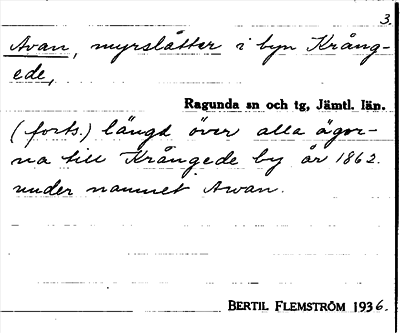 3.
Avan, myrslåtter i byn Krång-
ede,
Ragunda sn och tg, Jämtl. län.
(forts.) längd över alla ägor-
na till Krångede by år 1862.
under namnet Awan.
BERTIL FLEMSTRÖM 1936.